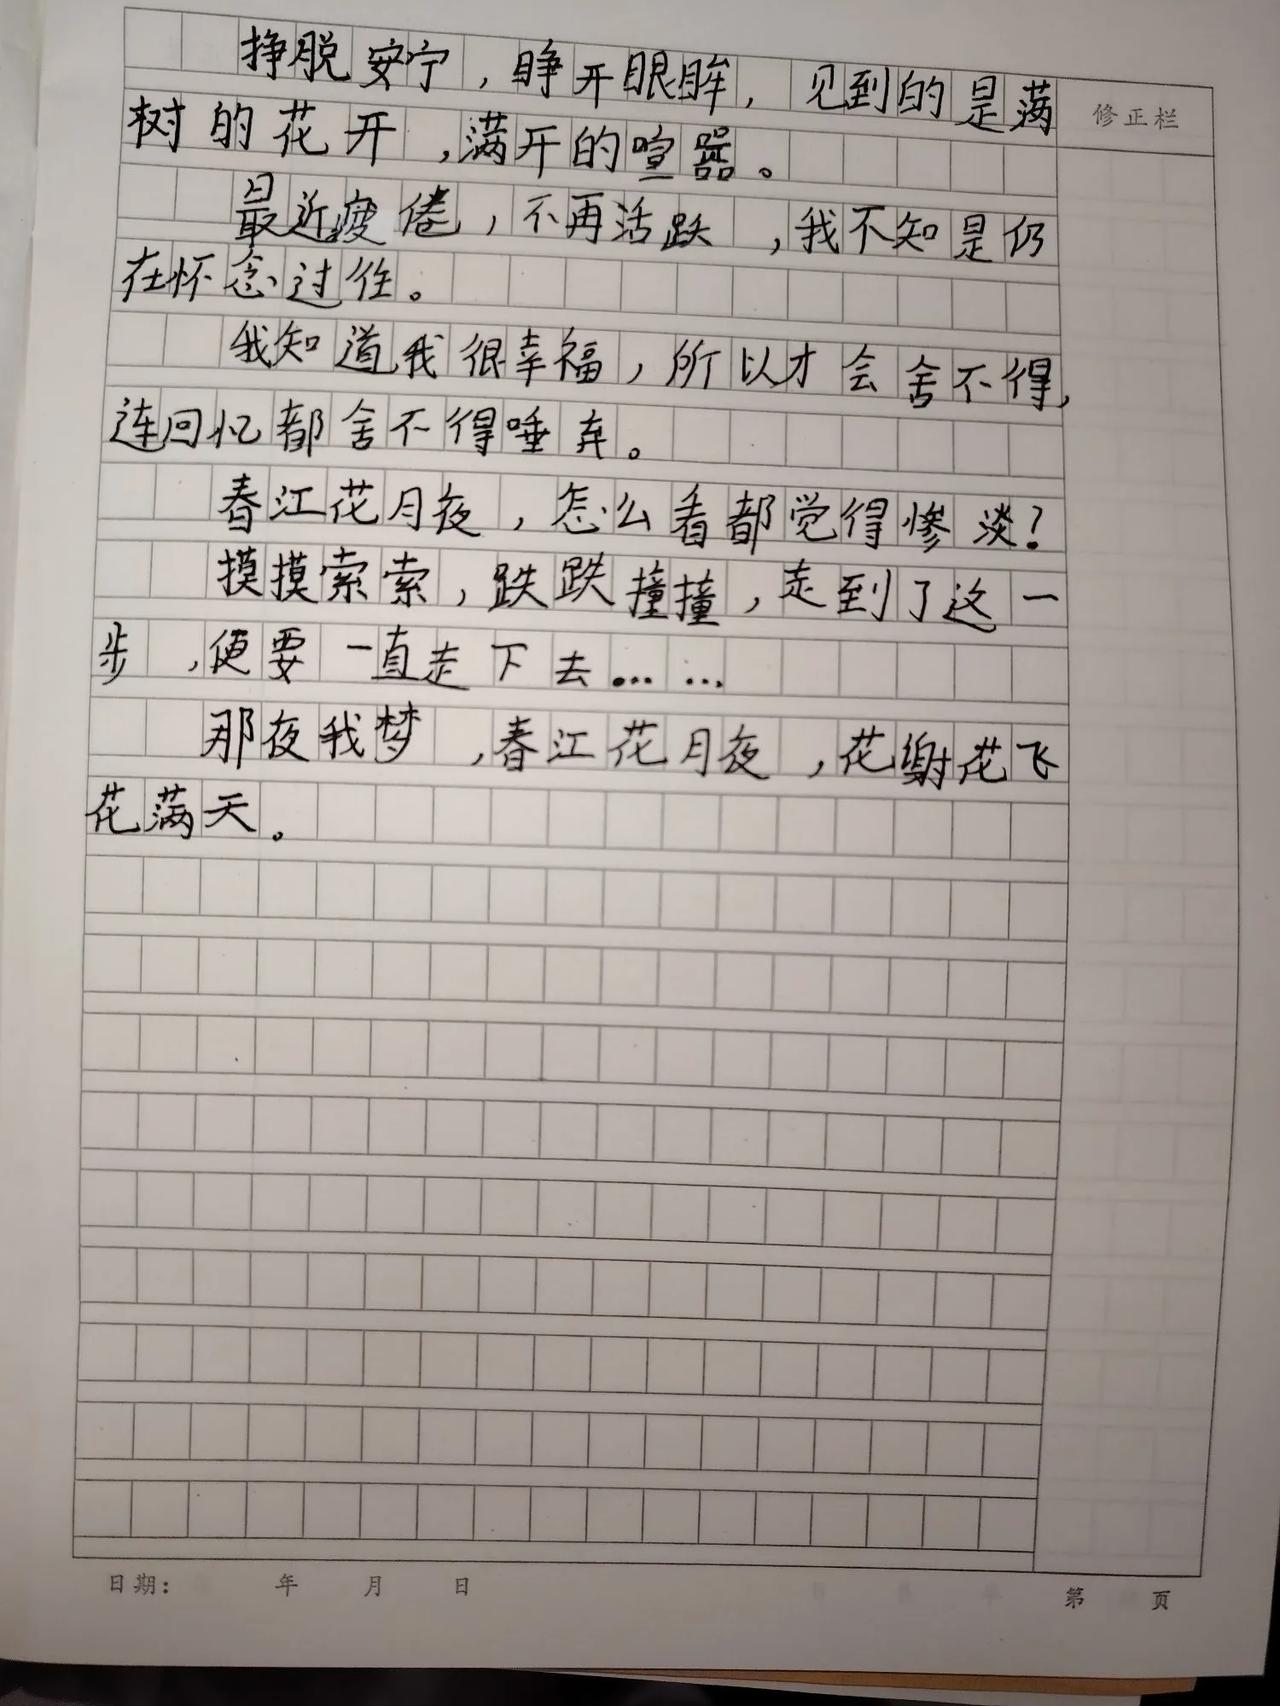 挣脱安宁，睁开眼眸，见到的是满
修正栏
树的花开，满开的喧嚣。
最近疲倦，不再活跃，我不知是仍
在怀念过往。
我知道我很幸福，所以才会舍不得，
连回忆都舍不得唾弃。
春江花月夜，怎么看都觉得惨淡？
摸摸索索，跌跌撞撞，走到了这一
步，便要一直走下去……
那夜我梦，春江花月夜，花谢花飞
花满天。
日期： 年 月 日
第 页